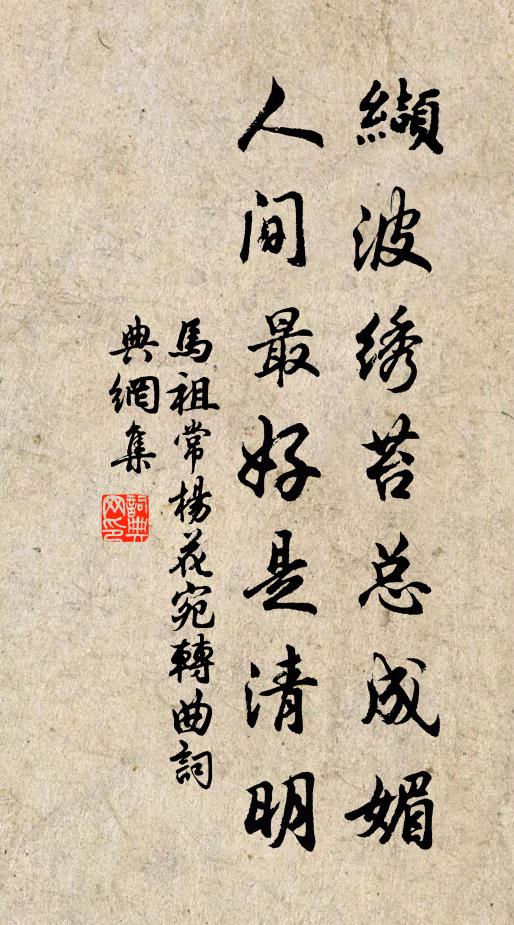 纈波绣苔总成媚
人间最好是清明
馬祖常楊花宛轉曲詞
典網集
詞典
网印